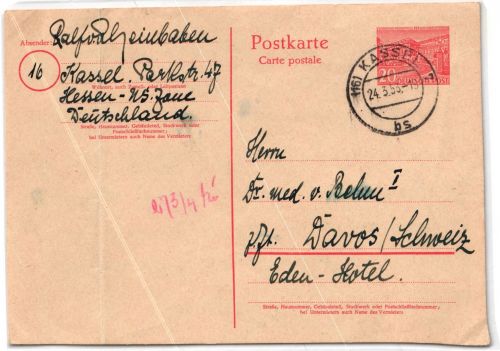 Absender:
Ralf v. Rheinbaben
16
Kassel. Parkstr. 47
Wohnort, auch Zustell- oder Leitpostamt
Hessen - US. Zone
Deutschland.
Straße, Hausnummer, Gebäudeteil, Stockwerk oder
Postschließfachnummer;
bei Untermietern auch Name des Vermieters
Postkarte
Carte postale
(16) KASSEL
20
24.3.53.-19
bs
Herrn
Dr. med. v.
z. Zt. Davos/Schweiz
Eden-Hotel.
Straße, Hausnummer, Gebäudeteil, Stockwerk oder Postschließfachnummer;
bei Untermietern auch Name des Vermieters